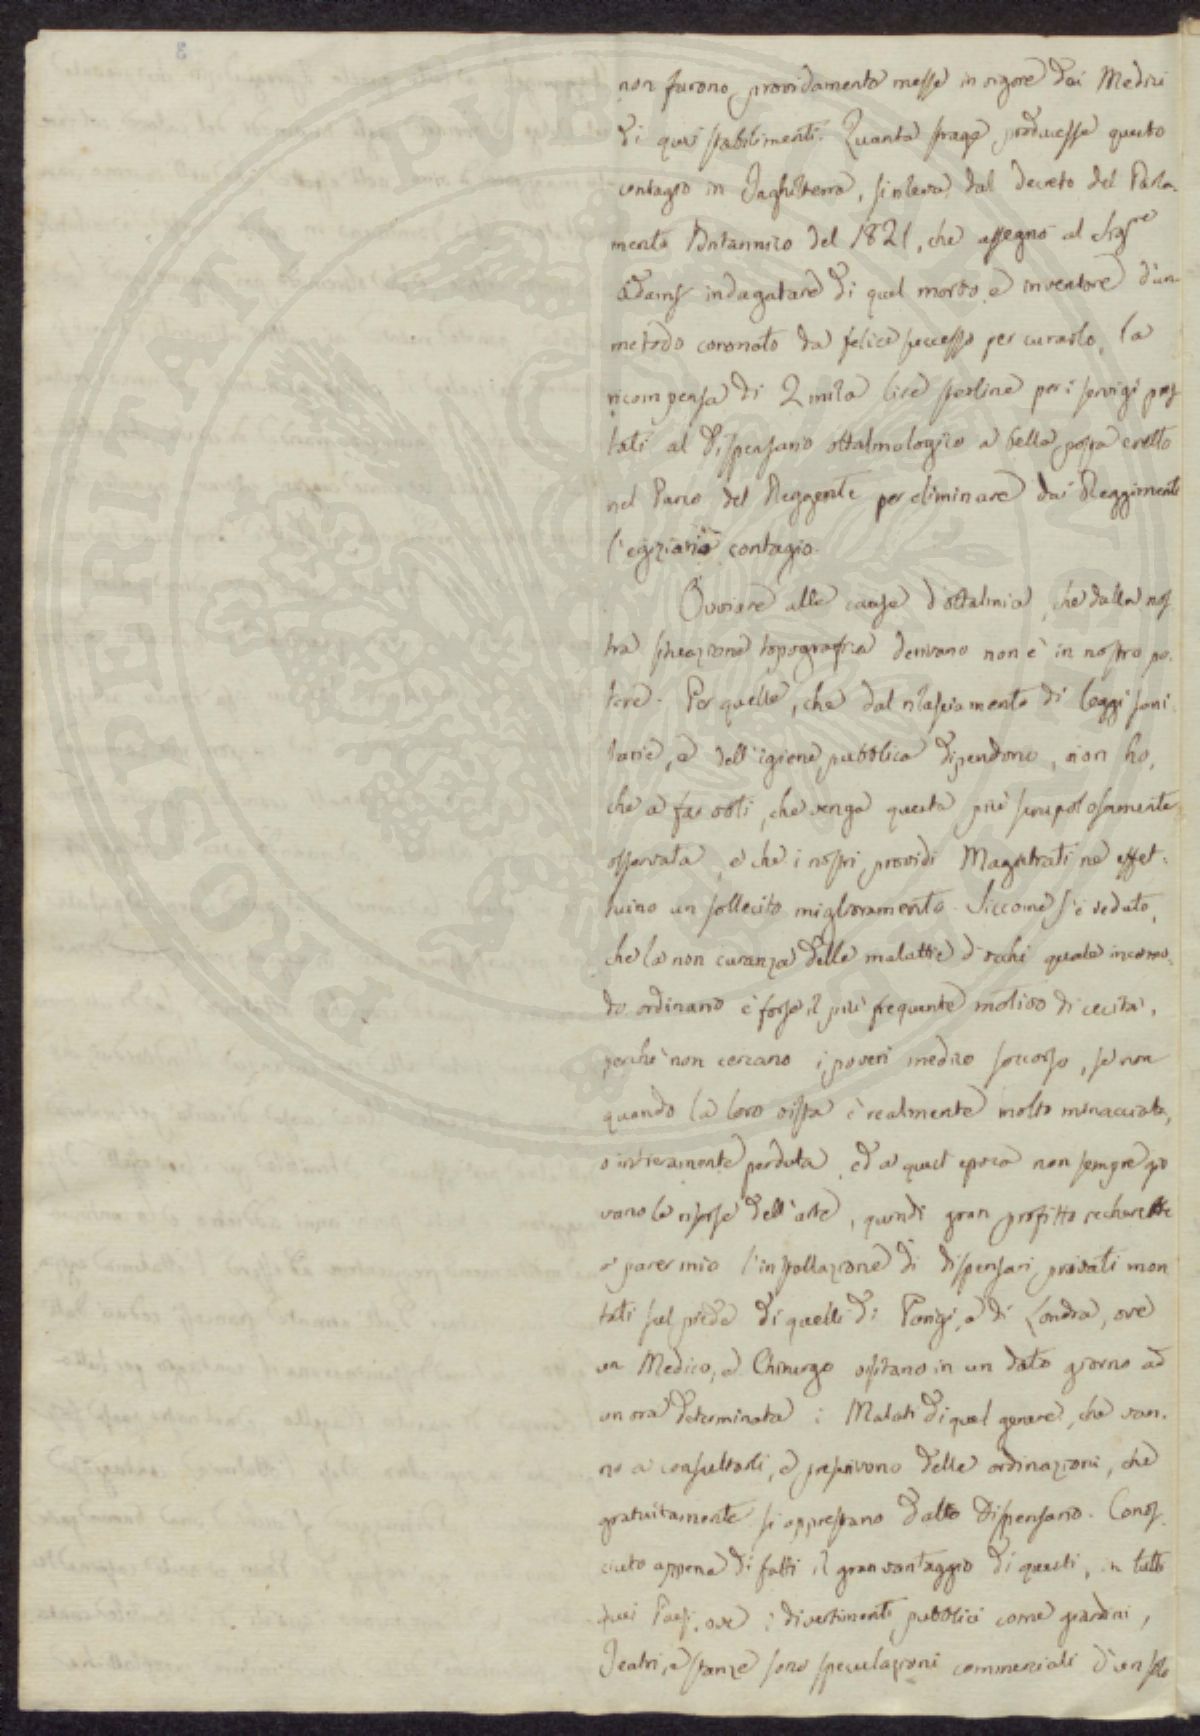 non furono providamente messe in vigore dai Medici
di quei stabilimenti. Quanta strage producesse questo
contagio in Inghilterra, si rileva dal decreto del Parla-
mento Britannico del 1821, che assegnò al Sig.re
Adams indagatore di quel morbo, e inventore d'un
metodo coronato da felice successo per curarlo, la
ricompensa di 2 mila lire sterline per i servigi pres
tati al dispensario ottalmologico a bella posta eretto
nel Parco del Reggente per eliminare dai Reggimenti
l'egiziano contagio.
Ovviare alle cause d'ottalmia, che dalla nos
tra situazione topografica derivano non è in nostro po-
tere. Per quelle, che dal rilasciamento di leggi sani-
tarie, e dell'igiene pubblica dipendono, non ho,
che a far voti, che venga questa più scrupolosamente
osservata, e che i nostri providi Magistrati ne effet-
tuino un sollecito miglioramento. Siccome s'è veduto,
che la non curanza delle malattie d'occhi quale incomo-
do ordinario è forse il più frequente motivo di cecità,
perchè non cercano i poveri medico soccorso, se non
quando la loro vista è realmente molto minacciata,
o intieramente perduta, ed a quest'epoca non sempre gio
vano le risorse dell'arte, quindi gran profitto recherebbe
a parer mio l'installazione di dispensari privati mon
tati sul piede di quelli di Parigi, e di Londra, ove
un Medico, e Chirurgo visitano in un dato giorno ad
un ora determinata i Malati di quel genere, che van-
no a consultarli, e prescrivono delle ordinazioni, che
gratuitamente si apprestano dallo dispensario. Conos-
ciuto appena di fatti il gran vantaggio di questi, in tutti
quei Paesi, ove i divertimenti pubblici come giardini,
Teatri, e stanze sono speculazioni commerciali d'un solo